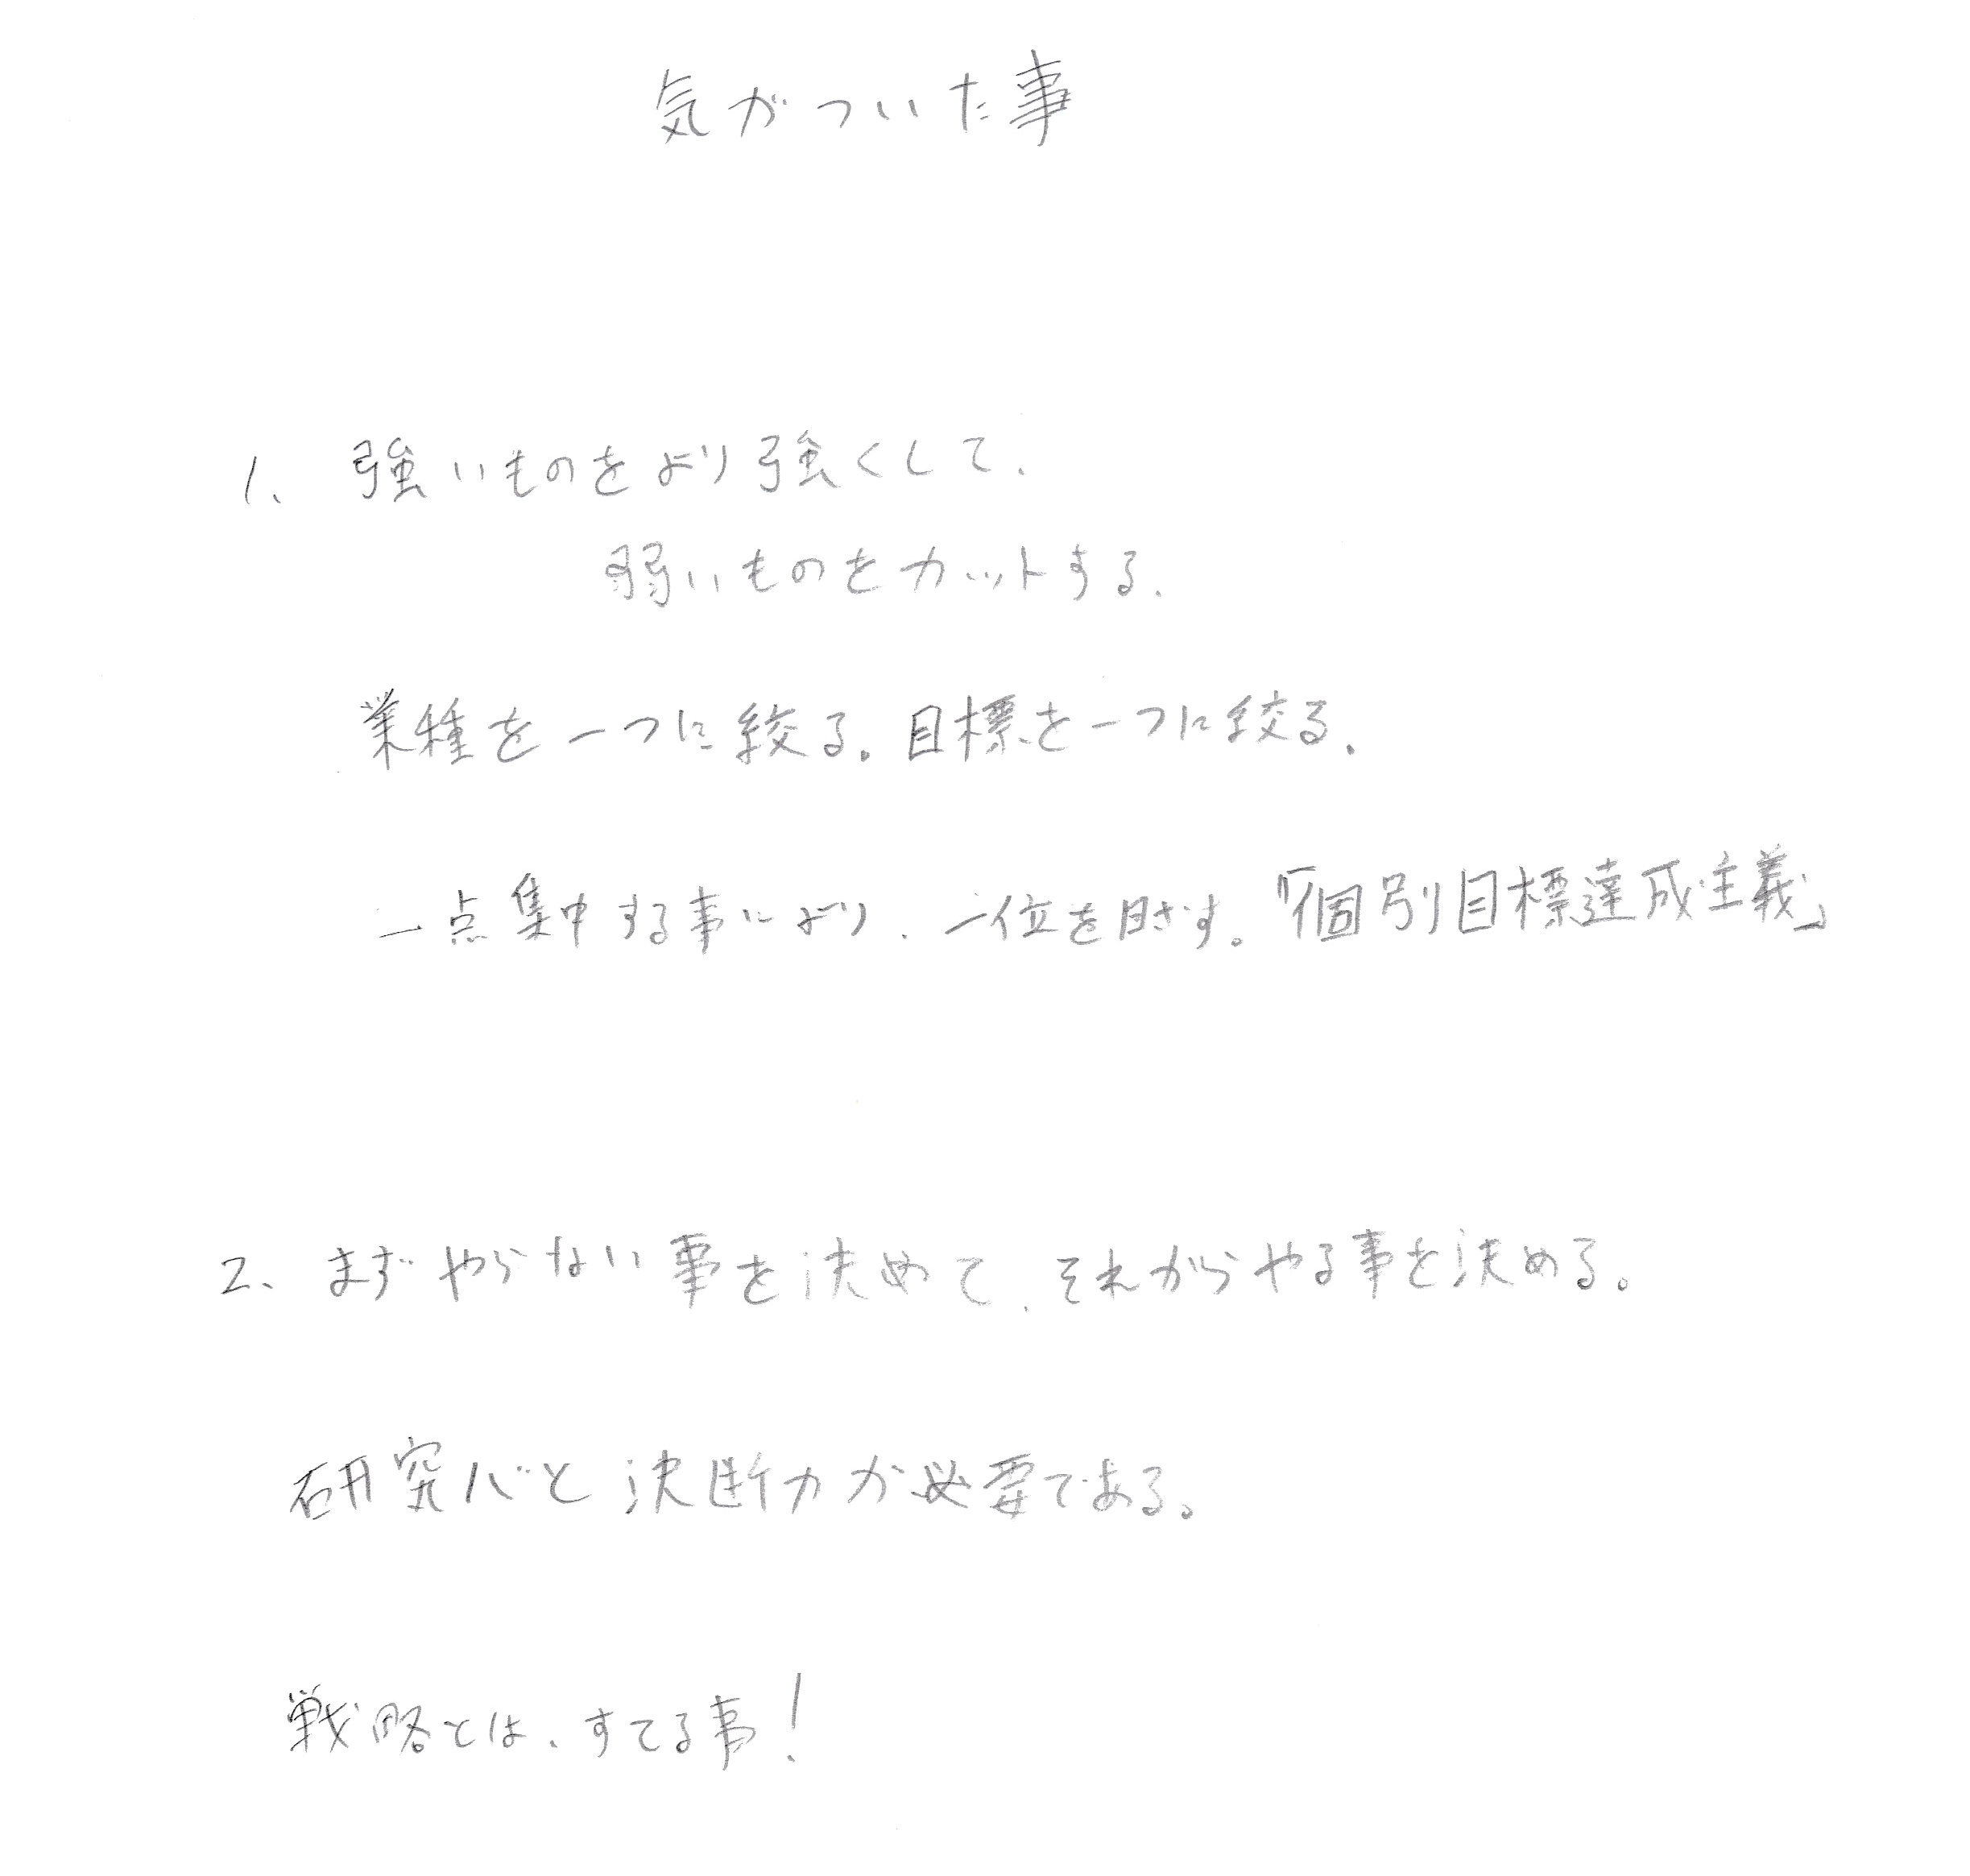 気がついた事
1、強いものをより強くして、
弱いものをカットする。
業種を一つに絞る。目標を一つに絞る。
一点集中する事により、一位を目ざす。「個別目標達成主義」
2、まずやらない事を決めて、それからやる事を決める。
研究心と決断力が必要である。
戦略とは、すてる事!